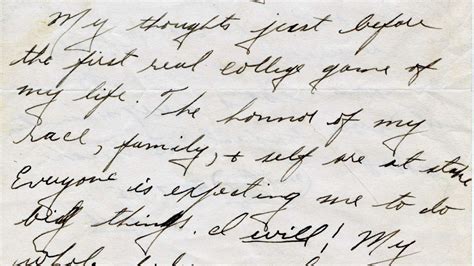 My thoughts just before
the first real college game of
my life. The honor of my
race, family, & self are at stake
Everyone is expecting me to do
big things. I will! My
whole